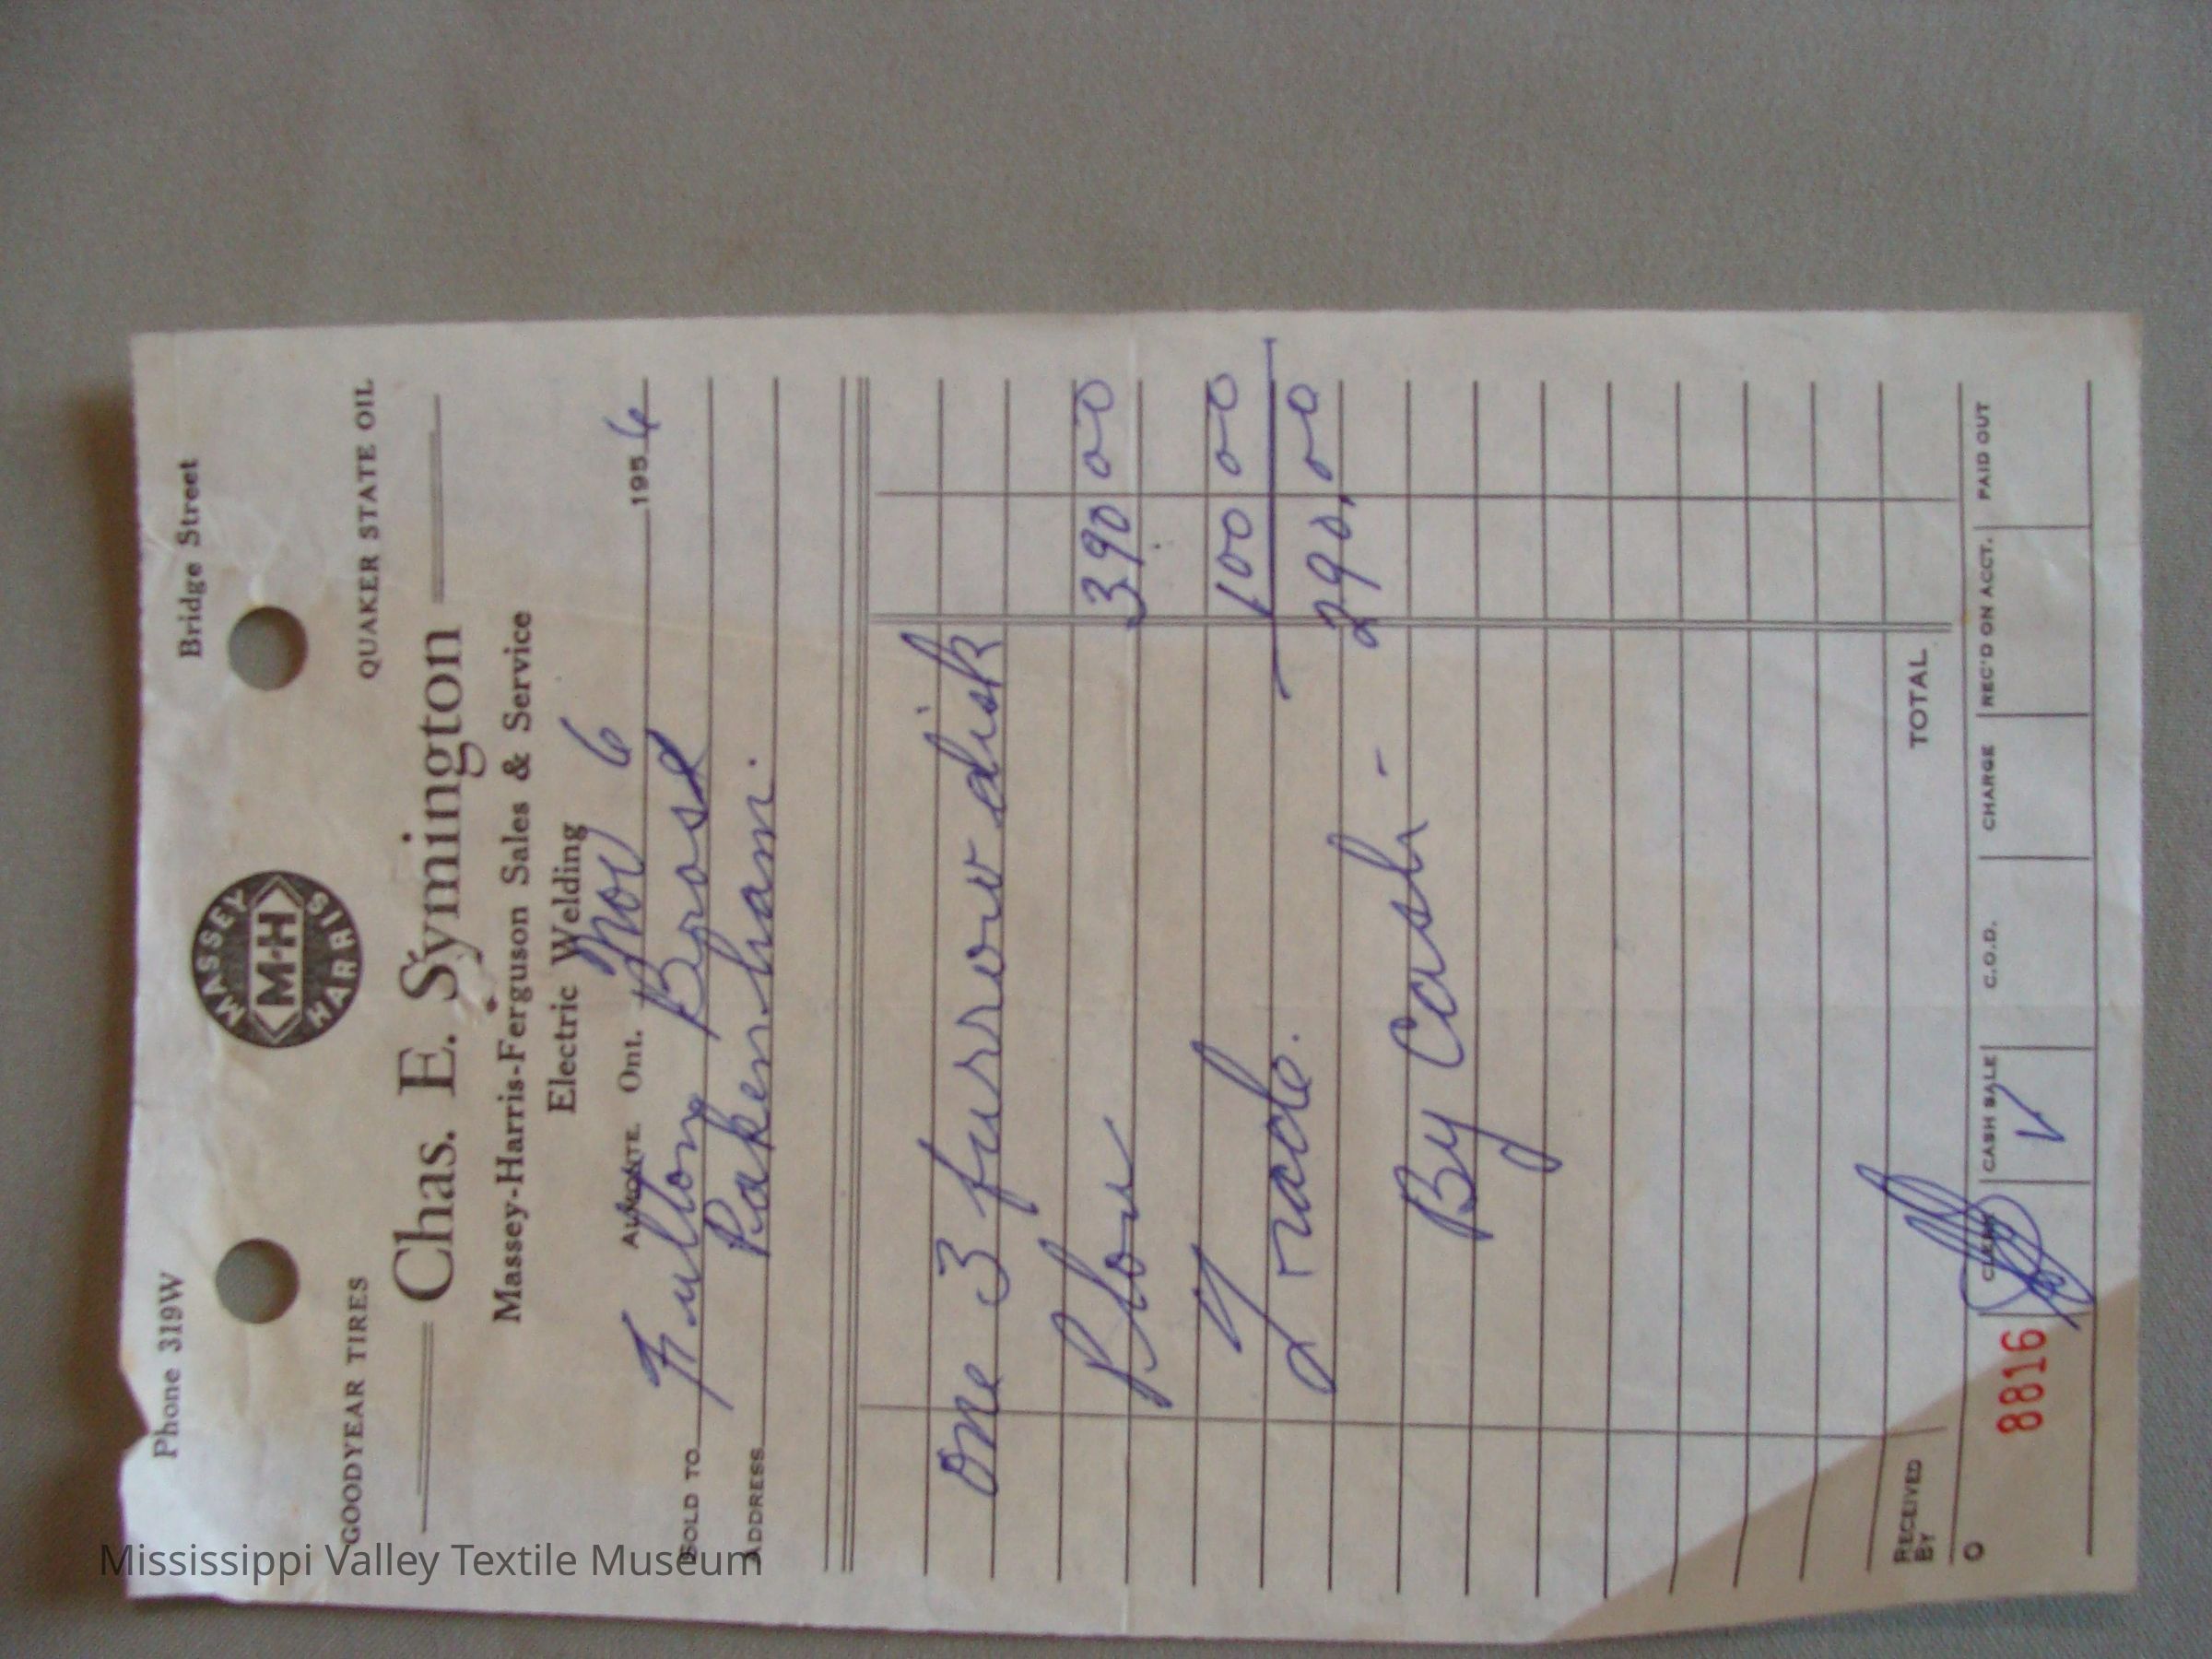 Phone 319W Bridge Street
MASSEY
M-H
HARRIS
GOODYEAR TIRES QUAKER STATE OIL
Chas. E. Symington
Massey-Harris-Ferguson Sales & Service
Electric Welding
ALMONTE Ont. Nov 6 1956
SOLD TO Fulton Bros
ADDRESS Pakenham.
One 3 furrow disk
Plow 390 00
Trade. 100 00
290.00
By Cash -
RECEIVED BY TOTAL
O 8816 CLERK CASH SALE C.O.D. CHARGE REC'D ON ACCT. PAID OUT
✓
Mississippi Valley Textile Museum